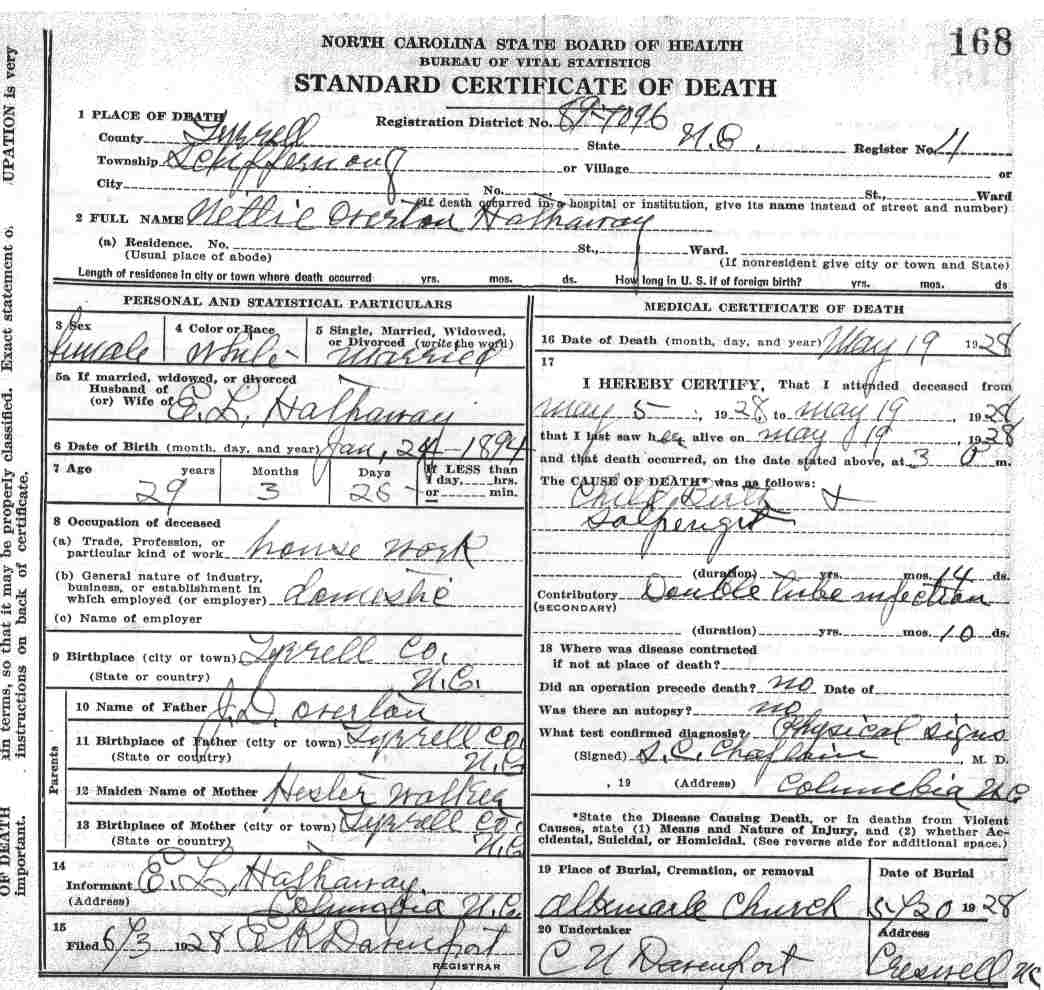 168
NORTH CAROLINA STATE BOARD OF HEALTH
BUREAU OF VITAL STATISTICS
STANDARD CERTIFICATE OF DEATH
1 PLACE OF DEATH
Registration District No. 89-7096
County Tyrrell State N.C. Register No. 4
Township Scuppernong or Village or
City No. St., Ward
(If death occurred in a hospital or institution, give its name instead of street and number)
2 FULL NAME Nettie Overton Hathaway
(a) Residence. No. St., Ward.
(Usual place of abode) (If nonresident give city or town and State)
Length of residence in city or town where death occurred yrs. mos. ds. How long in U. S. if of foreign birth? yrs. mos. ds
PERSONAL AND STATISTICAL PARTICULARS
3 Sex 4 Color or Race 5 Single, Married, Widowed,
or Divorced (write the word)
female white married
5a If married, widowed, or divorced
Husband of
(or) Wife of E. L. Hathaway
6 Date of Birth (month, day, and year) Jan, 24-1894
7 Age years Months Days If LESS than
1 day, hrs.
or min.
29 3 25
8 Occupation of deceased
(a) Trade, Profession, or
particular kind of work house work
(b) General nature of industry,
business, or establishment in
which employed (or employer) domestic
(c) Name of employer
9 Birthplace (city or town) Tyrrell Co.
(State or country) N.C.
Parents
10 Name of Father J. D. Overton
11 Birthplace of Father (city or town) Tyrrell Co.
(State or country) N.C.
12 Maiden Name of Mother Hester Walker
13 Birthplace of Mother (city or town) Tyrrell Co.
(State or country) N.C.
14
Informant E. L. Hathaway.
(Address) Columbia N.C.
15
Filed 6/3 1928 Davenport
REGISTRAR
MEDICAL CERTIFICATE OF DEATH
16 Date of Death (month, day, and year) May 19 1928
17
I HEREBY CERTIFY, That I attended deceased from
May 5, 1928, to May 19 1928
that I last saw her alive on May 19, 1928
and that death occurred, on the date stated above, at 3 P m.
The CAUSE OF DEATH* was as follows:
Child Birth +
(duration) yrs. mos. 14 ds.
Contributory Double tube infection
(SECONDARY)
(duration) yrs. mos. 10 ds.
18 Where was disease contracted
if not at place of death?
Did an operation precede death? no Date of
Was there an autopsy? no
What test confirmed diagnosis? Physical signs
(Signed) , M. D.
, 19 (Address) Columbia N.C.
*State the Disease Causing Death, or in deaths from Violent
Causes, state (1) Means and Nature of Injury, and (2) whether Ac-
cidental, Suicidal, or Homicidal. (See reverse side for additional space.)
19 Place of Burial, Cremation, or removal Date of Burial
Albemarle Church 5/20 1928
20 Undertaker Address
C U Davenport Creswell NC
UPATION is very
Exact statement o.
in terms, so that it may be properly classified.
instructions on back of certificate.
OF DEATH
important.